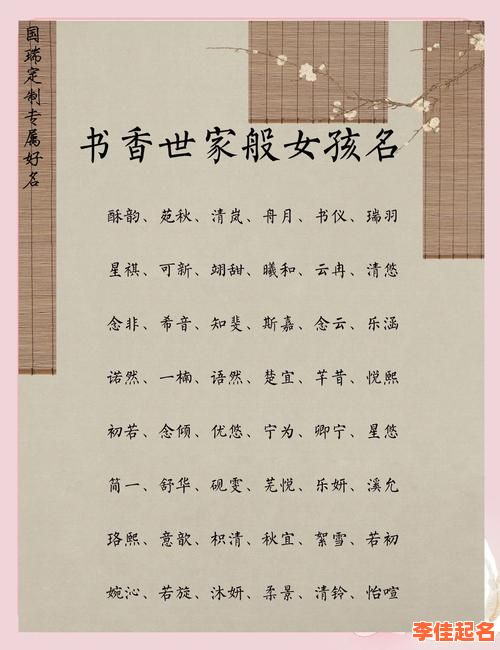 国瑞定制专属好名
书香世家般女孩名
酥韵、苑秋、清岚、舟月、书仪、瑞羽
星祺、可新、翊甜、曦和、云冉、清悠
念非、希音、知斐、斯嘉、念云、乐涵
诺然、一楠、语然、楚宜、芊昔、悦熙
初若、念倾、优悠、宁为、卿宁、星悠
简一、舒华、砚雯、芜悦、乐妍、溪允
珞熙、意歆、枳清、秋宜、絮雪、若初
婉沁、若旋、沐妍、柔景、清铃、怡喧
李佳起名